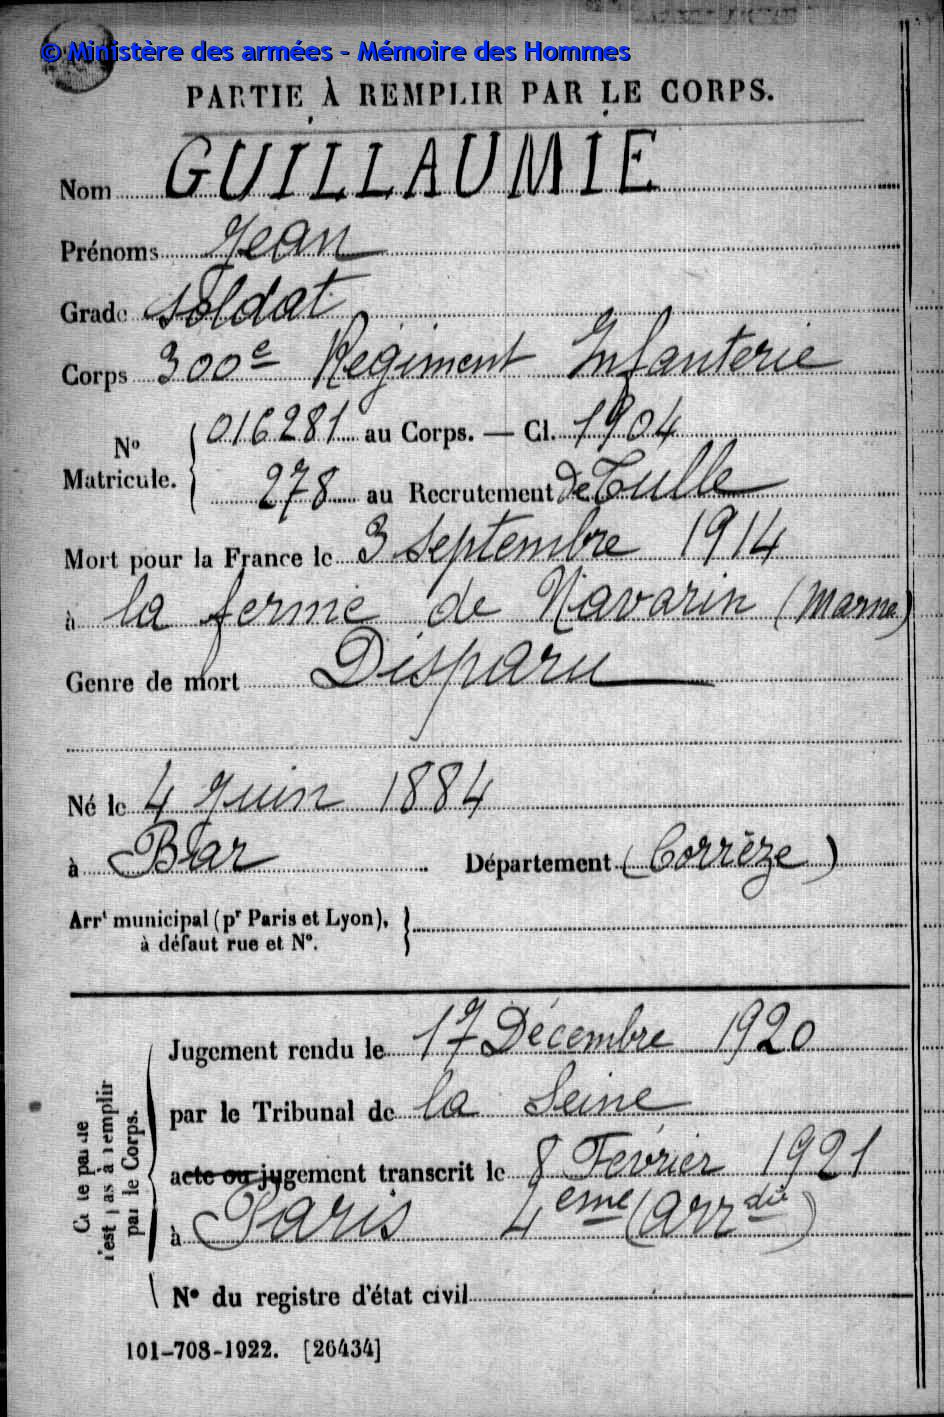 © Ministère des armées - Mémoire des Hommes
PARTIE À REMPLIR PAR LE CORPS.
Nom GUILLAUMIE
Prénoms Jean
Grade Soldat
Corps 300e Régiment Infanterie
No Matricule. { 016281 au Corps. — Cl. 1904
278 au Recrutement de Tulle
Mort pour la France le 3 Septembre 1914
à la ferme de Navarin (Marne)
Genre de mort Disparu
Né le 4 Juin 1884
à Bar Département (Corrèze)
Arrt municipal (pr Paris et Lyon), }
à défaut rue et No.
Cette partie n'est pas à remplir par le Corps.
Jugement rendu le 17 Décembre 1920
par le Tribunal de la Seine
acte ou jugement transcrit le 8 Février 1921
à Paris 4eme (arrdit)
No du registre d'état civil
101-708-1922. [26434]